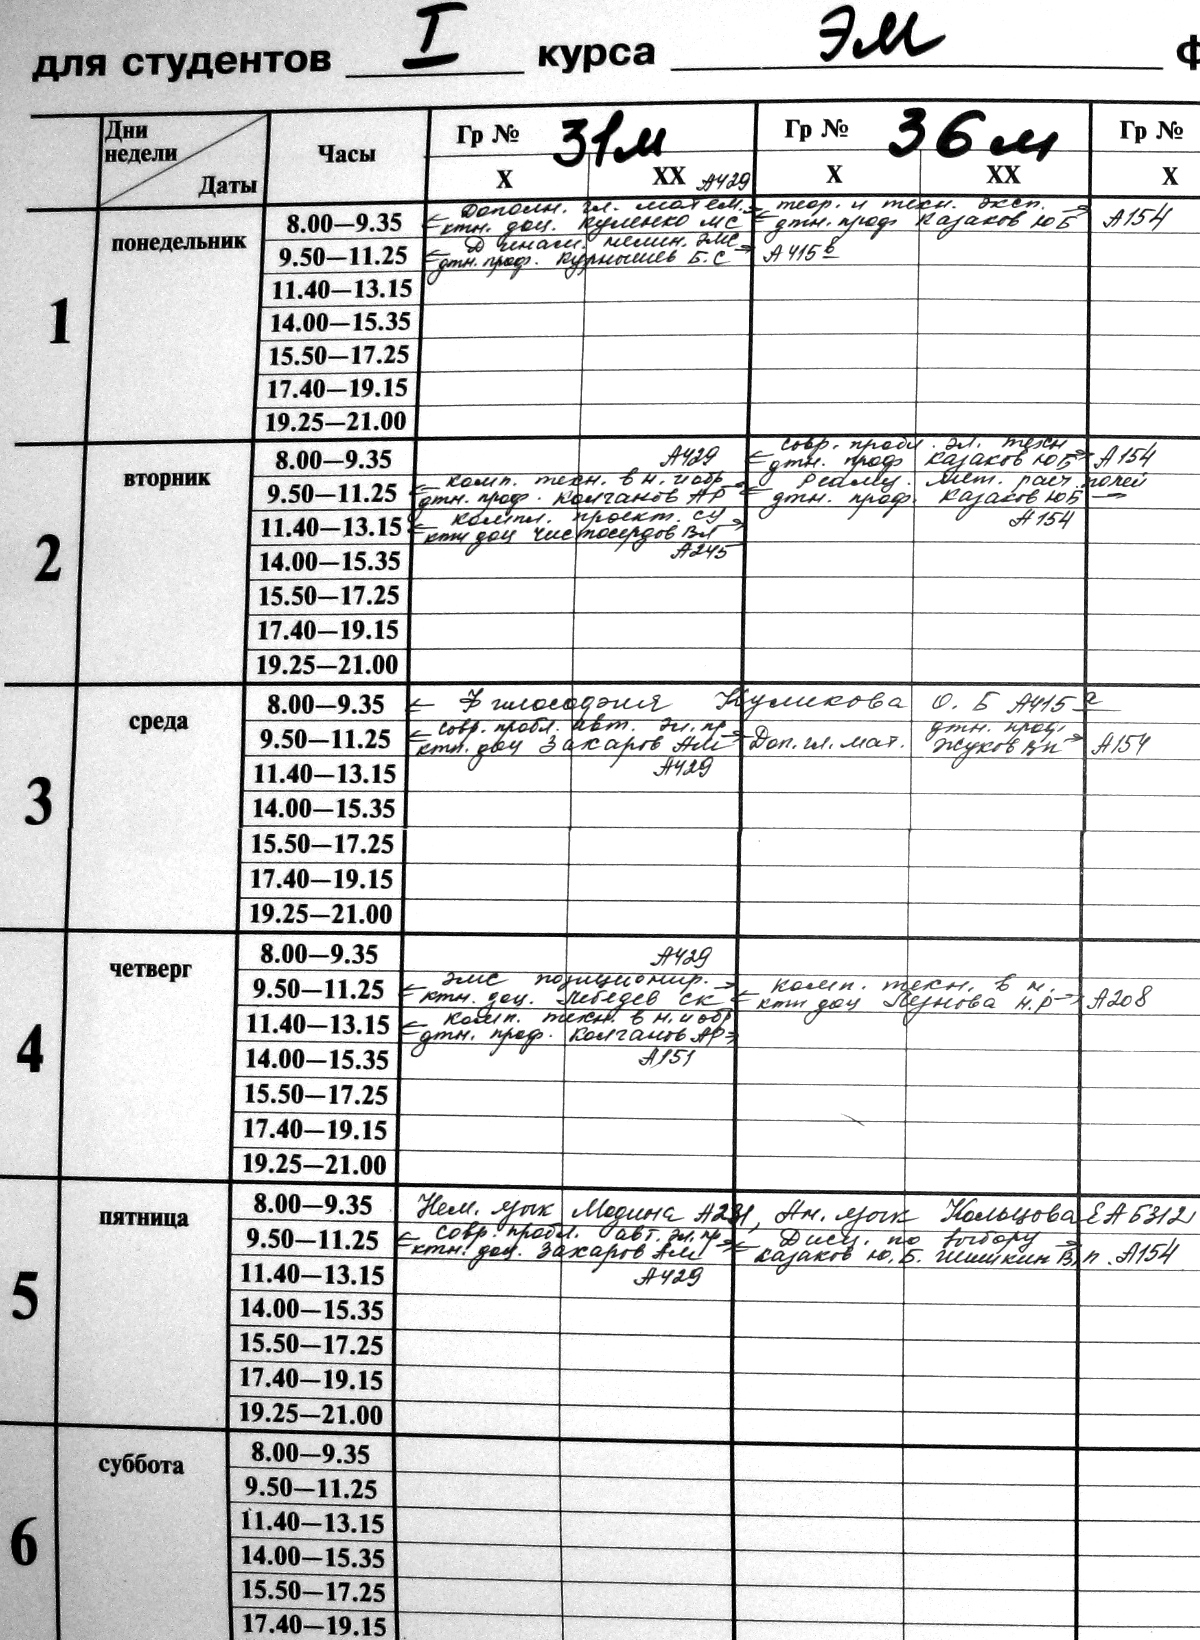 для студентов I курса ЭМ ф
Дни недели Даты Часы Гр № 31м Гр № 36м Гр №
X XX А429 X XX X
1 понедельник
Дополн. гл. матем. теор. и техн. эксп.
8.00—9.35 ктн. доц. Куленко МС дтн. проф Казаков Ю Б А154
Динам. нелин. ЭМС
9.50—11.25 дтн. проф. Курнышев Б.С А 415 б
11.40—13.15
14.00—15.35
15.50—17.25
17.40—19.15
19.25—21.00
2 вторник
совр. пробл. эл. техн
8.00—9.35 А429 дтн. проф Казаков Ю Б А154
комп. техн. в н. и обр мет. расч. полей
9.50—11.25 дтн. проф. Колганов АР дтн. проф. Казаков Ю Б
компл. проект. СУ А154
11.40—13.15 ктн доц Чистосердов ВЛ
14.00—15.35 А245
15.50—17.25
17.40—19.15
19.25—21.00
3 среда
8.00—9.35 Философия Куликова О. Б А415 а
совр. пробл. авт. эл. пр дтн. проф.
9.50—11.25 ктн. доц Захаров АМ Доп. гл. мат. Жуков ВП А154
11.40—13.15 А429
14.00—15.35
15.50—17.25
17.40—19.15
19.25—21.00
4 четверг
8.00—9.35 А429
ЭМС позиционир. комп. техн. в н.
9.50—11.25 ктн. доц. Лебедев СК ктн доц Н.Р А208
комп. техн. в н. и обр
11.40—13.15 дтн. проф. Колганов АР
14.00—15.35 А151
15.50—17.25
17.40—19.15
19.25—21.00
5 пятница
8.00—9.35 Нем. язык Модина А231, Ан. язык Кольцова Е А Б312
совр. пробл. авт. эл. пр Дисц. по выбору
9.50—11.25 ктн. доц. Захаров АМ Казаков Ю. Б. Шишкин В. п. А154
11.40—13.15 А429
14.00—15.35
15.50—17.25
17.40—19.15
19.25—21.00
6 суббота
8.00—9.35
9.50—11.25
11.40—13.15
14.00—15.35
15.50—17.25
17.40—19.15